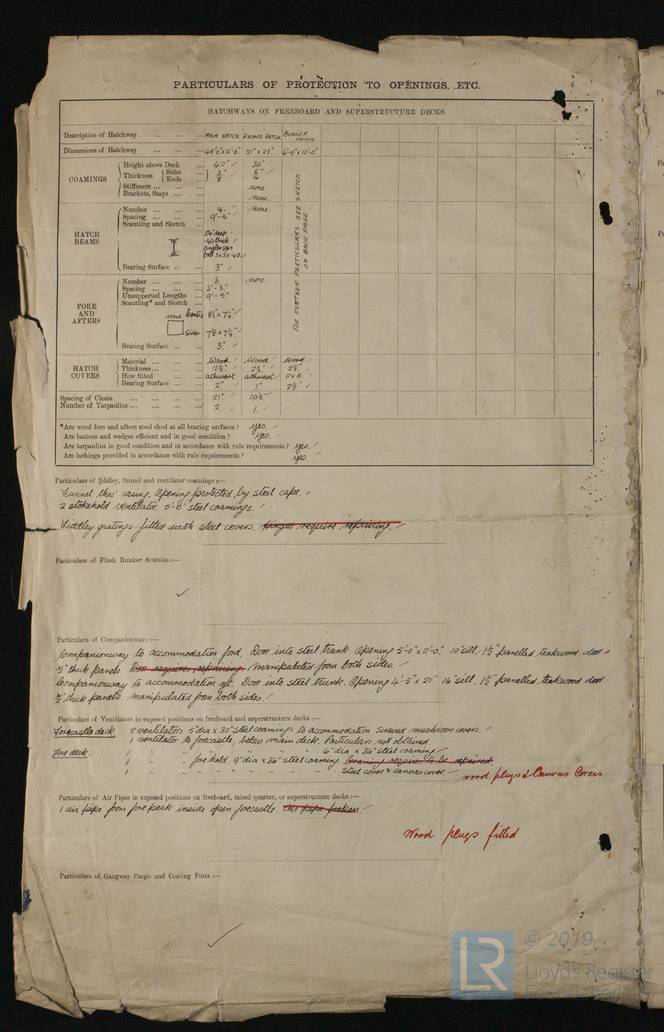 PARTICULARS OF PROTECTION TO OPENINGS, ETC.
HATCHWAYS ON FREEBOARD AND SUPERSTRUCTURE DECKS
Description of Hatchway ... ... ... MAIN HATCH. ESCAPE HATCH BUNKER HATCH
Dimensions of Hatchway ... ... ... 21" x 23" 6'-9" x 12'-0"
COAMINGS
Height above Deck ... 42" 30"
Thickness Sides Ends
Stiffeners ... ... none.
Brackets, Stays ... ... none.
HATCH BEAMS
Number ... ... ... 4. none.
Spacing ... ... ... 9'-5"
Scantling and Sketch
Bearing Surface ... 3"
FOR FURTHER PARTICULARS SEE SKETCH ON BACK PAGE
FORE AND AFTERS
Number ... ... ... 3 none
Spacing ... ... ... 3'-3"
Unsupported Lengths 9'-5"
Scantling* and Sketch
centre 8½" x 7¼"
sides 7½ x 7¼"
Bearing Surface ... 3"
HATCH COVERS
Material ... ... ... Wood. Wood. Wood.
Thickness ... ... ... 2½" 2½" 2½"
How fitted ... ... athwart. athwart. F & A.
Bearing Surface ... 2" 1" 2½"
Spacing of Cleats ... ... ... ... 21" 10½"
Number of Tarpaulins ... ... ... 2. 1.
*Are wood fore and afters steel shod at all bearing surfaces? yes.
Are battens and wedges efficient and in good condition? yes.
Are tarpaulins in good condition and in accordance with rule requirements? yes.
Are lashings provided in accordance with rule requirements? yes.
Particulars of fiddley, funnel and ventilator coamings:—
Funnel thro' casing. Opening protected by steel cape.
2 stokehold ventilator, 5'-6" steel coamings.
Fiddley gratings fitted with steel covers. Hinges require repairing.
Particulars of Flush Bunker Scuttles:—
Particulars of Companionways:—
Companionway to accommodation ford. Door into steel trunk. Opening 5'-0" x 2'-0". 10" sill. 1½" panelled teakwood door
½" thick panels Door requires repairing. Manipulated from both sides.
Companionway to accommodation aft. Door into steel trunk. Opening 4'-5" x 21" 16" sill. 1½" panelled teakwood door
½" thick panels. manipulated from both sides.
Particulars of Ventilators in exposed positions on freeboard and superstructure decks:—
Forecastle deck 2 ventilators 5" dia x 30" steel coamings to accommodation screwed mushroom covers.
1 ventilator to forecastle, below main deck. Particulars not obtained.
Fore deck. 1 " " " 6" dia x 36" steel coaming
1 " " fore hold, 9" dia x 36" steel coaming. Coaming requires to be repaired
1 " " " " Steel cover & canvas cover. wood plugs & Canvas Covers
Particulars of Air Pipes in exposed positions on freeboard, raised quarter, or superstructure decks:—
1 air pipe from fore peak inside open forecastle. Air pipe broken.
Wood plugs fitted
Particulars of Gangway Cargo and Coaling Ports:—
LR
© 2019
Lloyd's Register
Foundation